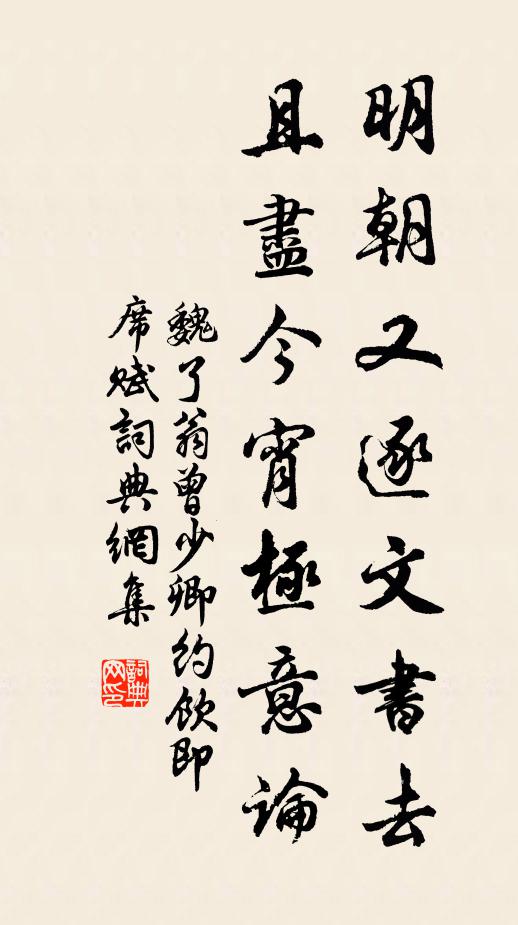 明朝又逐文書去
且盡今宵極意論
魏了翁曾少卿約飲即
席賦詞典網集
詞典
网印